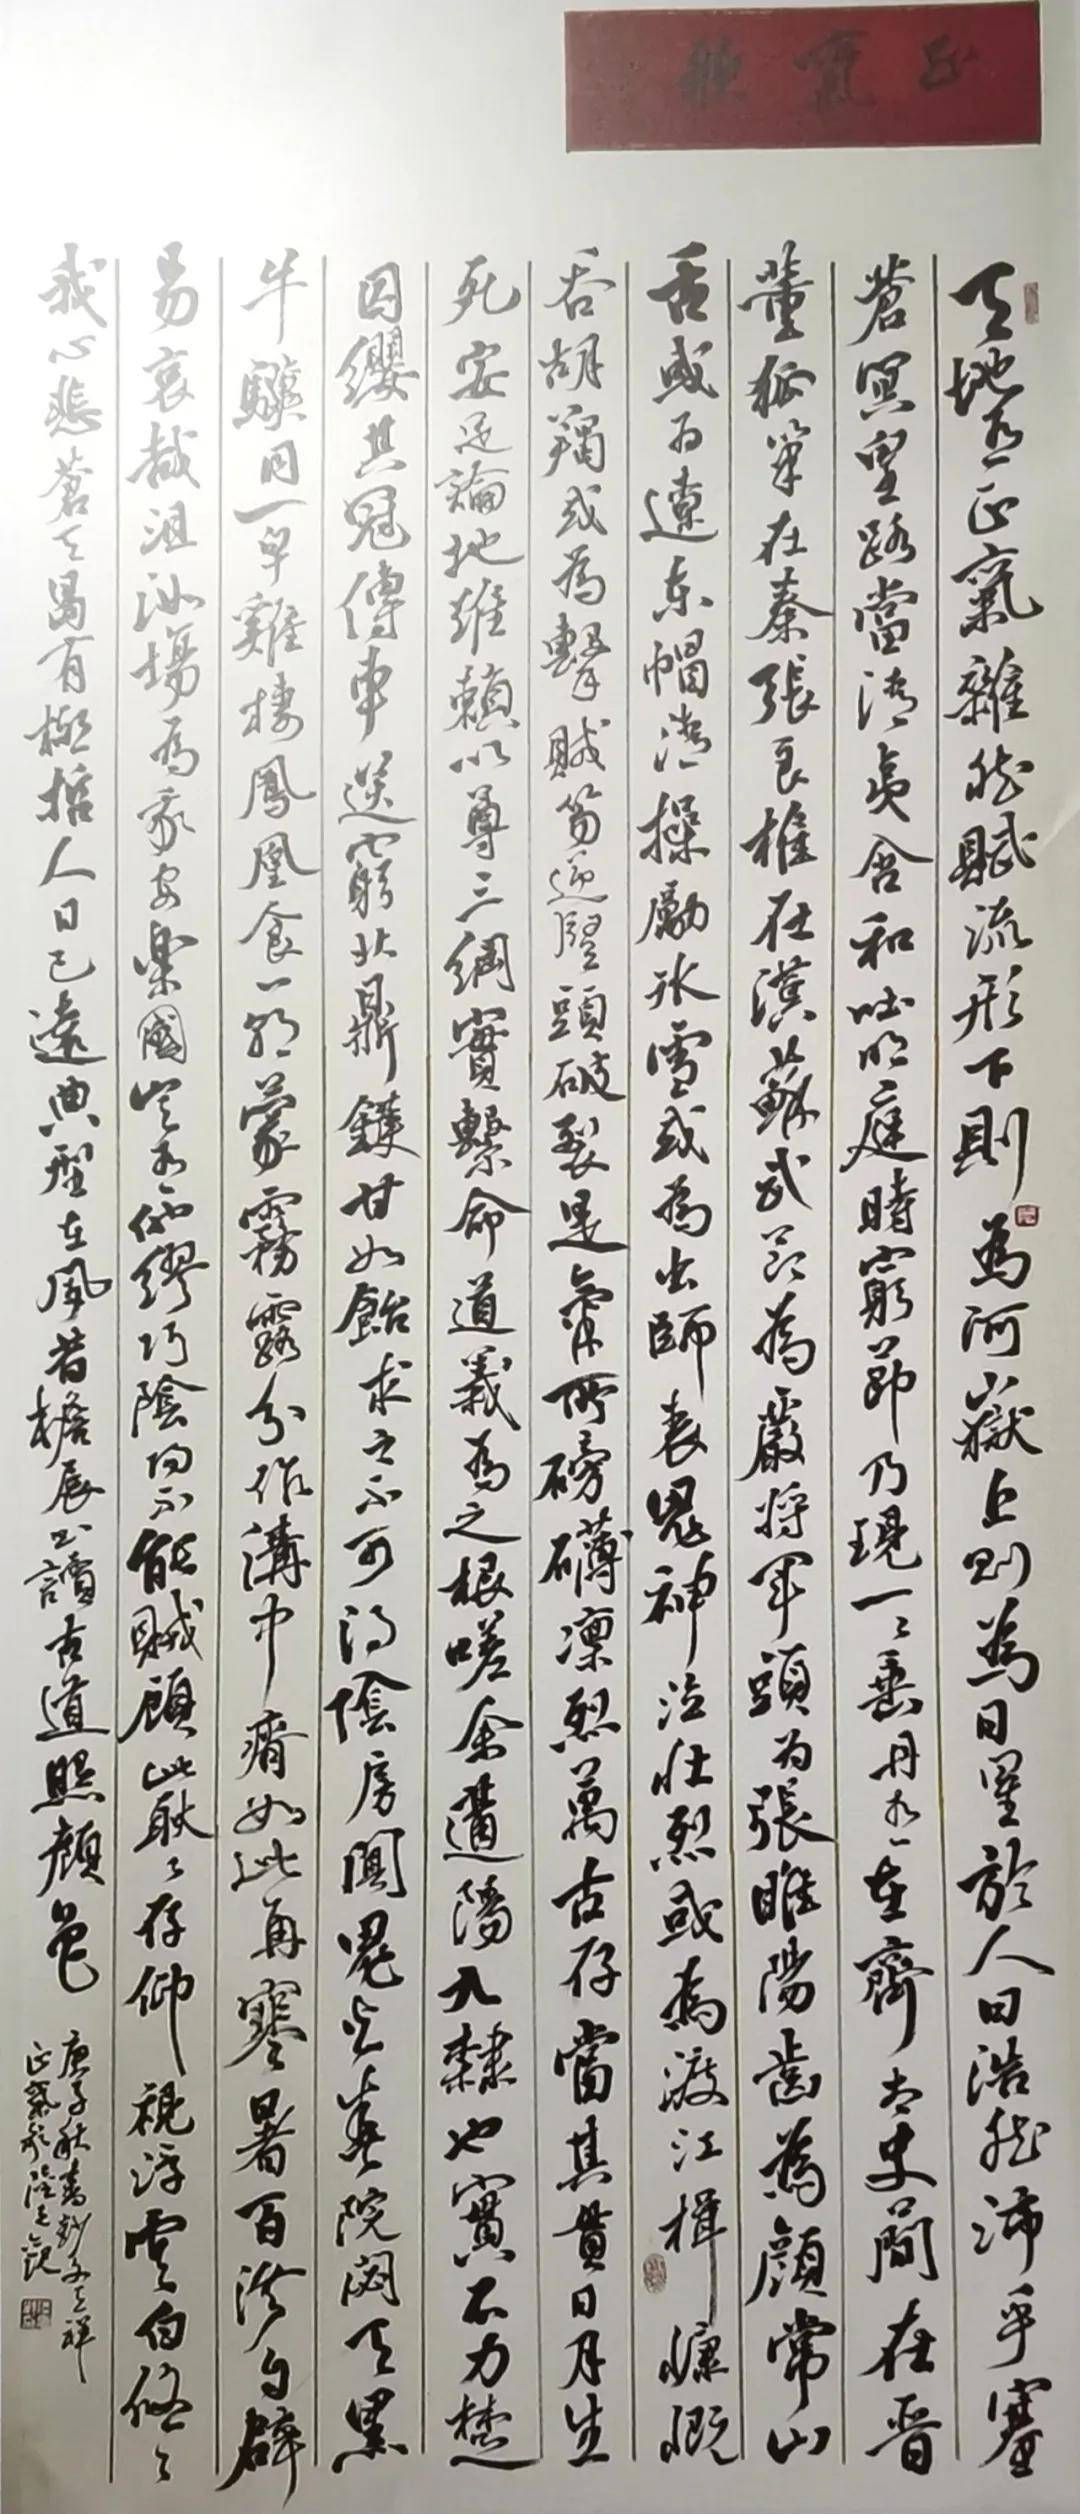 正氣歌
天地有正氣雜然賦流形下則為河嶽上則為日星於人曰浩然沛乎塞
蒼冥皇路當清夷含和吐明庭時窮節乃現一一垂丹青在齊太史簡在晉
董狐筆在秦張良椎在漢蘇武節為嚴將軍頭為張睢陽齒為顏常山
舌或為遼東帽清操勵冰雪或為出師表鬼神泣壯烈或為渡江楫慷慨
吞胡羯或為擊賊笏逆豎頭破裂是氣所磅礴凜烈萬古存當其貫日月生
死安足論地維賴以尊三綱實繫命道義為之根嗟余遘陽九隸也實不力楚
囚纓其冠傳車送窮北鼎鑊甘如飴求之不可得陰房闃鬼火春院閟天黑
牛驥同一皁雞棲鳳凰食一朝蒙霧露分作溝中瘠如此再寒暑百沴自辟
易哀哉沮洳場為我安樂國豈有他繆巧陰陽不能賊顧此耿々存仰視浮雲白悠々
我心悲蒼天曷有極哲人日已遠典型在夙昔檐展書讀古道照顏色
庚子秋書錄文天祥
正氣歌